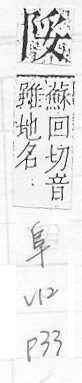 蘇回切音
雖地名
阜
V12
P33